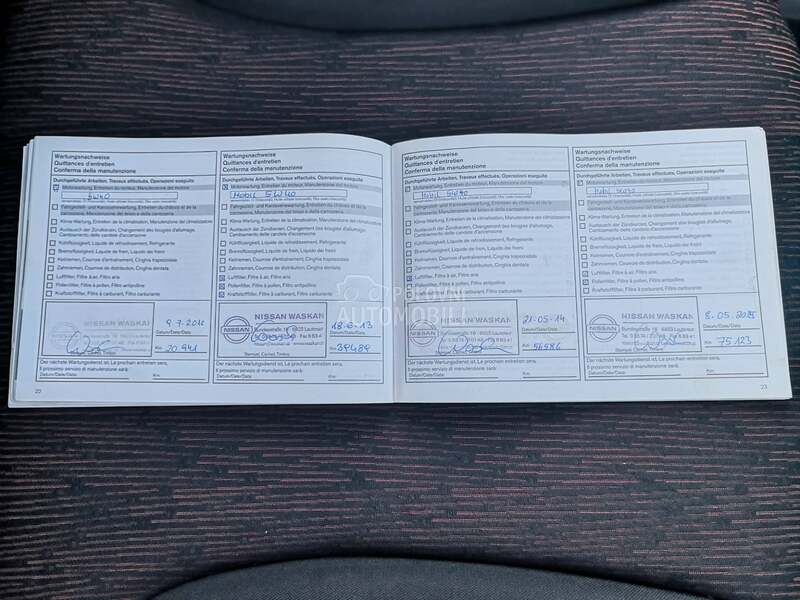 Wartungsnachweise
Quittances d'entretien
Conferma della manutenzione
Durchgeführte Arbeiten, Travaux effectués, Operazioni eseguite
Motorwartung, Entretien du moteur, Manutenzione del motore
5W40
Fahrgestell- und Karosseriewartung, Entretien du châssis et de la
carrosserie, Manutenzione del telaio e della carrozzeria
Klima-Wartung, Entretien de la climatisation, Manutenzione del climatizzatore
Austausch der Zündkerzen, Changement des bougies d'allumage,
Cambiamento delle candele d'accensione
Kühlflüssigkeit, Liquide de refroidissement, Refrigerante
Bremsflüssigkeit, Liquide de frein, Liquido dei freni
Keilriemen, Courroie d'entraînement, Cinghia trapezoidale
Zahnriemen, Courroie de distribution, Cinghia dentata
Luftfilter, Filtre à air, Filtro aria
Pollenfilter, Filtre à pollen, Filtro antipolline
Kraftstofffilter, Filtre à carburant, Filtro carburante
Datum/Date/Data
Km 20.941
Stempel, Cachet, Timbro
Der nächste Wartungsdienst ist, Le prochain entretien sera,
Il prossimo servizio di manutenzione sarà:
Datum/Date/Data: Km:
22
Wartungsnachweise
Quittances d'entretien
Conferma della manutenzione
Durchgeführte Arbeiten, Travaux effectués, Operazioni eseguite
Motorwartung, Entretien du moteur, Manutenzione del motore
Mobil 5W40
Fahrgestell- und Karosseriewartung, Entretien du châssis et de la
carrosserie, Manutenzione del telaio e della carrozzeria
Klima-Wartung, Entretien de la climatisation, Manutenzione del climatizzatore
Austausch der Zündkerzen, Changement des bougies d'allumage,
Cambiamento delle candele d'accensione
Kühlflüssigkeit, Liquide de refroidissement, Refrigerante
Bremsflüssigkeit, Liquide de frein, Liquido dei freni
Keilriemen, Courroie d'entraînement, Cinghia trapezoidale
Zahnriemen, Courroie de distribution, Cinghia dentata
Luftfilter, Filtre à air, Filtro aria
Pollenfilter, Filtre à pollen, Filtro antipolline
Kraftstofffilter, Filtre à carburant, Filtro carburante
NISSAN WASKAN
NISSAN
18-6-13
Datum/Date/Data
39489
Stempel, Cachet, Timbro
Der nächste Wartungsdienst ist, Le prochain entretien sera,
Il prossimo servizio di manutenzione sarà:
Datum/Date/Data: Km:
Wartungsnachweise
Quittances d'entretien
Conferma della manutenzione
Durchgeführte Arbeiten, Travaux effectués, Operazioni eseguite
Motorwartung, Entretien du moteur, Manutenzione del motore
Mobil 5W40
Fahrgestell- und Karosseriewartung, Entretien du châssis et de la
carrosserie, Manutenzione del telaio e della carrozzeria
Klima-Wartung, Entretien de la climatisation, Manutenzione del climatizzatore
Austausch der Zündkerzen, Changement des bougies d'allumage,
Cambiamento delle candele d'accensione
Kühlflüssigkeit, Liquide de refroidissement, Refrigerante
Bremsflüssigkeit, Liquide de frein, Liquido dei freni
Keilriemen, Courroie d'entraînement, Cinghia trapezoidale
Zahnriemen, Courroie de distribution, Cinghia dentata
Luftfilter, Filtre à air, Filtro aria
Pollenfilter, Filtre à pollen, Filtro antipolline
Kraftstofffilter, Filtre à carburant, Filtro carburante
NISSAN WASKAN
NISSAN
21-05-14
Datum/Date/Data
Km 56586
Stempel, Cachet, Timbro
Der nächste Wartungsdienst ist, Le prochain entretien sera,
Il prossimo servizio di manutenzione sarà:
Datum/Date/Data: Km:
Wartungsnachweise
Quittances d'entretien
Conferma della manutenzione
Durchgeführte Arbeiten, Travaux effectués, Operazioni eseguite
Motorwartung, Entretien du moteur, Manutenzione del motore
Mobil 5W40
Fahrgestell- und Karosseriewartung, Entretien du châssis et de la
carrosserie, Manutenzione del telaio e della carrozzeria
Klima-Wartung, Entretien de la climatisation, Manutenzione del climatizzatore
Austausch der Zündkerzen, Changement des bougies d'allumage,
Cambiamento delle candele d'accensione
Kühlflüssigkeit, Liquide de refroidissement, Refrigerante
Bremsflüssigkeit, Liquide de frein, Liquido dei freni
Keilriemen, Courroie d'entraînement, Cinghia trapezoidale
Zahnriemen, Courroie de distribution, Cinghia dentata
Luftfilter, Filtre à air, Filtro aria
Pollenfilter, Filtre à pollen, Filtro antipolline
Kraftstofffilter, Filtre à carburant, Filtro carburante
NISSAN WASKAN
NISSAN
8.05.2015
Datum/Date/Data
Km 75123
Stempel, Cachet, Timbro
Der nächste Wartungsdienst ist, Le prochain entretien sera,
Il prossimo servizio di manutenzione sarà:
Datum/Date/Data: Km:
23
POLOVNI
AUTOMOBILI